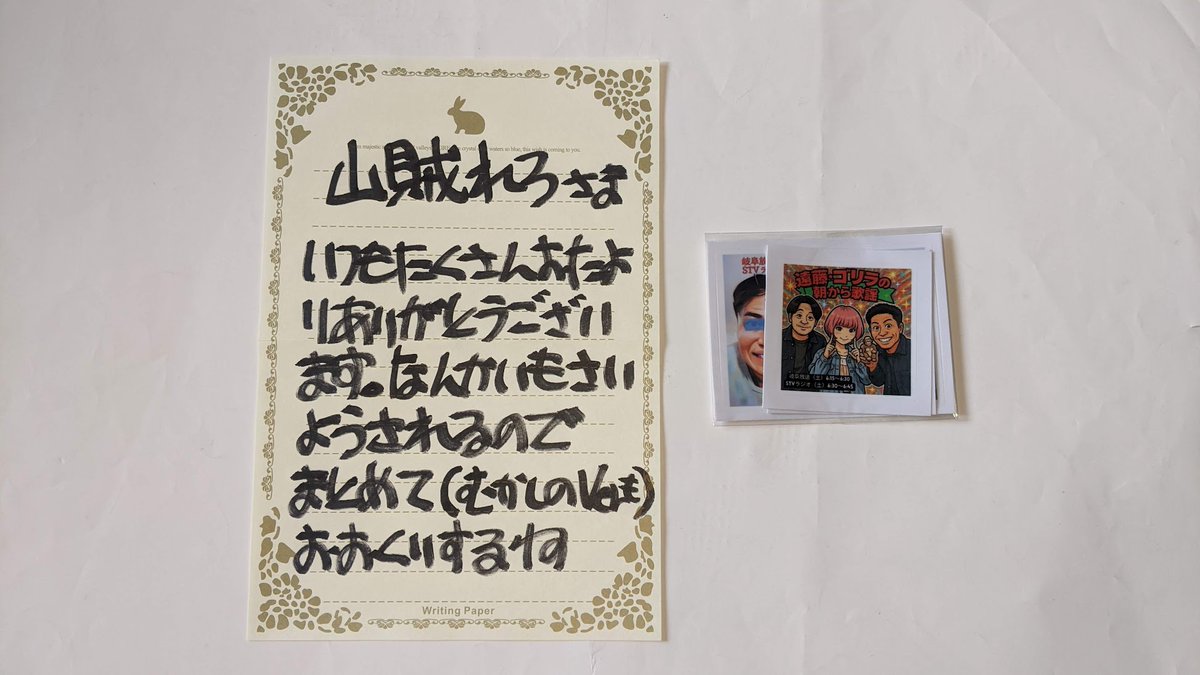 山賊れろさま
いつもたくさんおたよ
りありがとうござい
ます。なんかいもさい
ようされるので
まとめて(むかしのVerも)
おおくりするね
Writing Paper
岐阜放
STVラ
遠藤・ゴリラの
朝から歌謡
岐阜放送(土)6:15~6:30
STVラジオ(土)6:30~6:45